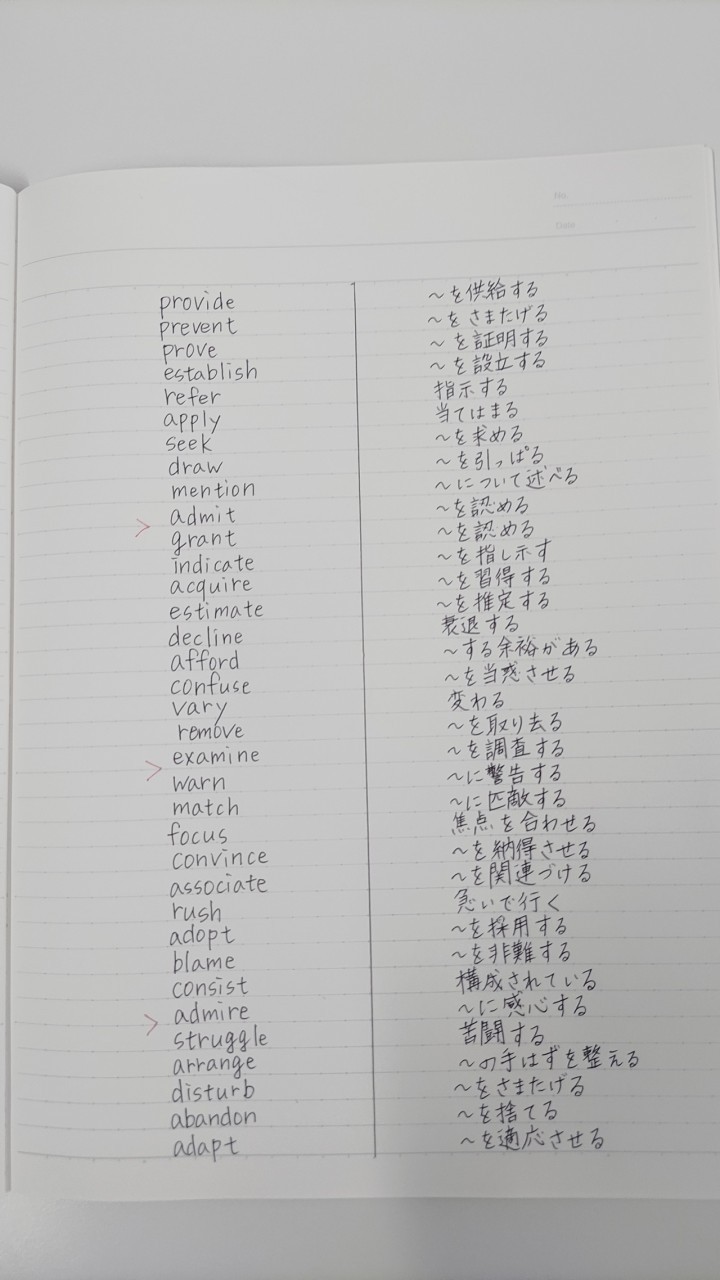 No.
Date
provide ～を供給する
prevent ～をさまたげる
prove ～を証明する
establish ～を設立する
refer 指示する
apply 当てはまる
seek ～を求める
draw ～を引っぱる
mention ～について述べる
admit ～を認める
> grant ～を認める
indicate ～を指し示す
acquire ～を習得する
estimate ～を推定する
decline 衰退する
afford ～する余裕がある
confuse ～を当惑させる
vary 変わる
remove ～を取り去る
examine ～を調査する
> warn ～に警告する
match ～に匹敵する
focus 焦点を合わせる
convince ～を納得させる
associate ～を関連づける
rush 急いで行く
adopt ～を採用する
blame ～を非難する
consist 構成されている
admire ～に感心する
> struggle 苦闘する
arrange ～の手はずを整える
disturb ～をさまたげる
abandon ～を捨てる
adapt ～を適応させる